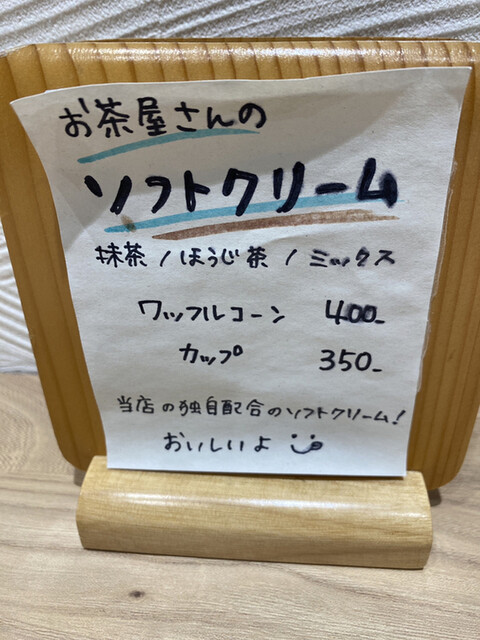 お茶屋さんの
ソフトクリーム
抹茶 / ほうじ茶 / ミックス
ワッフルコーン 400-
カップ 350-
当店の独自配合のソフトクリーム!
おいしいよ